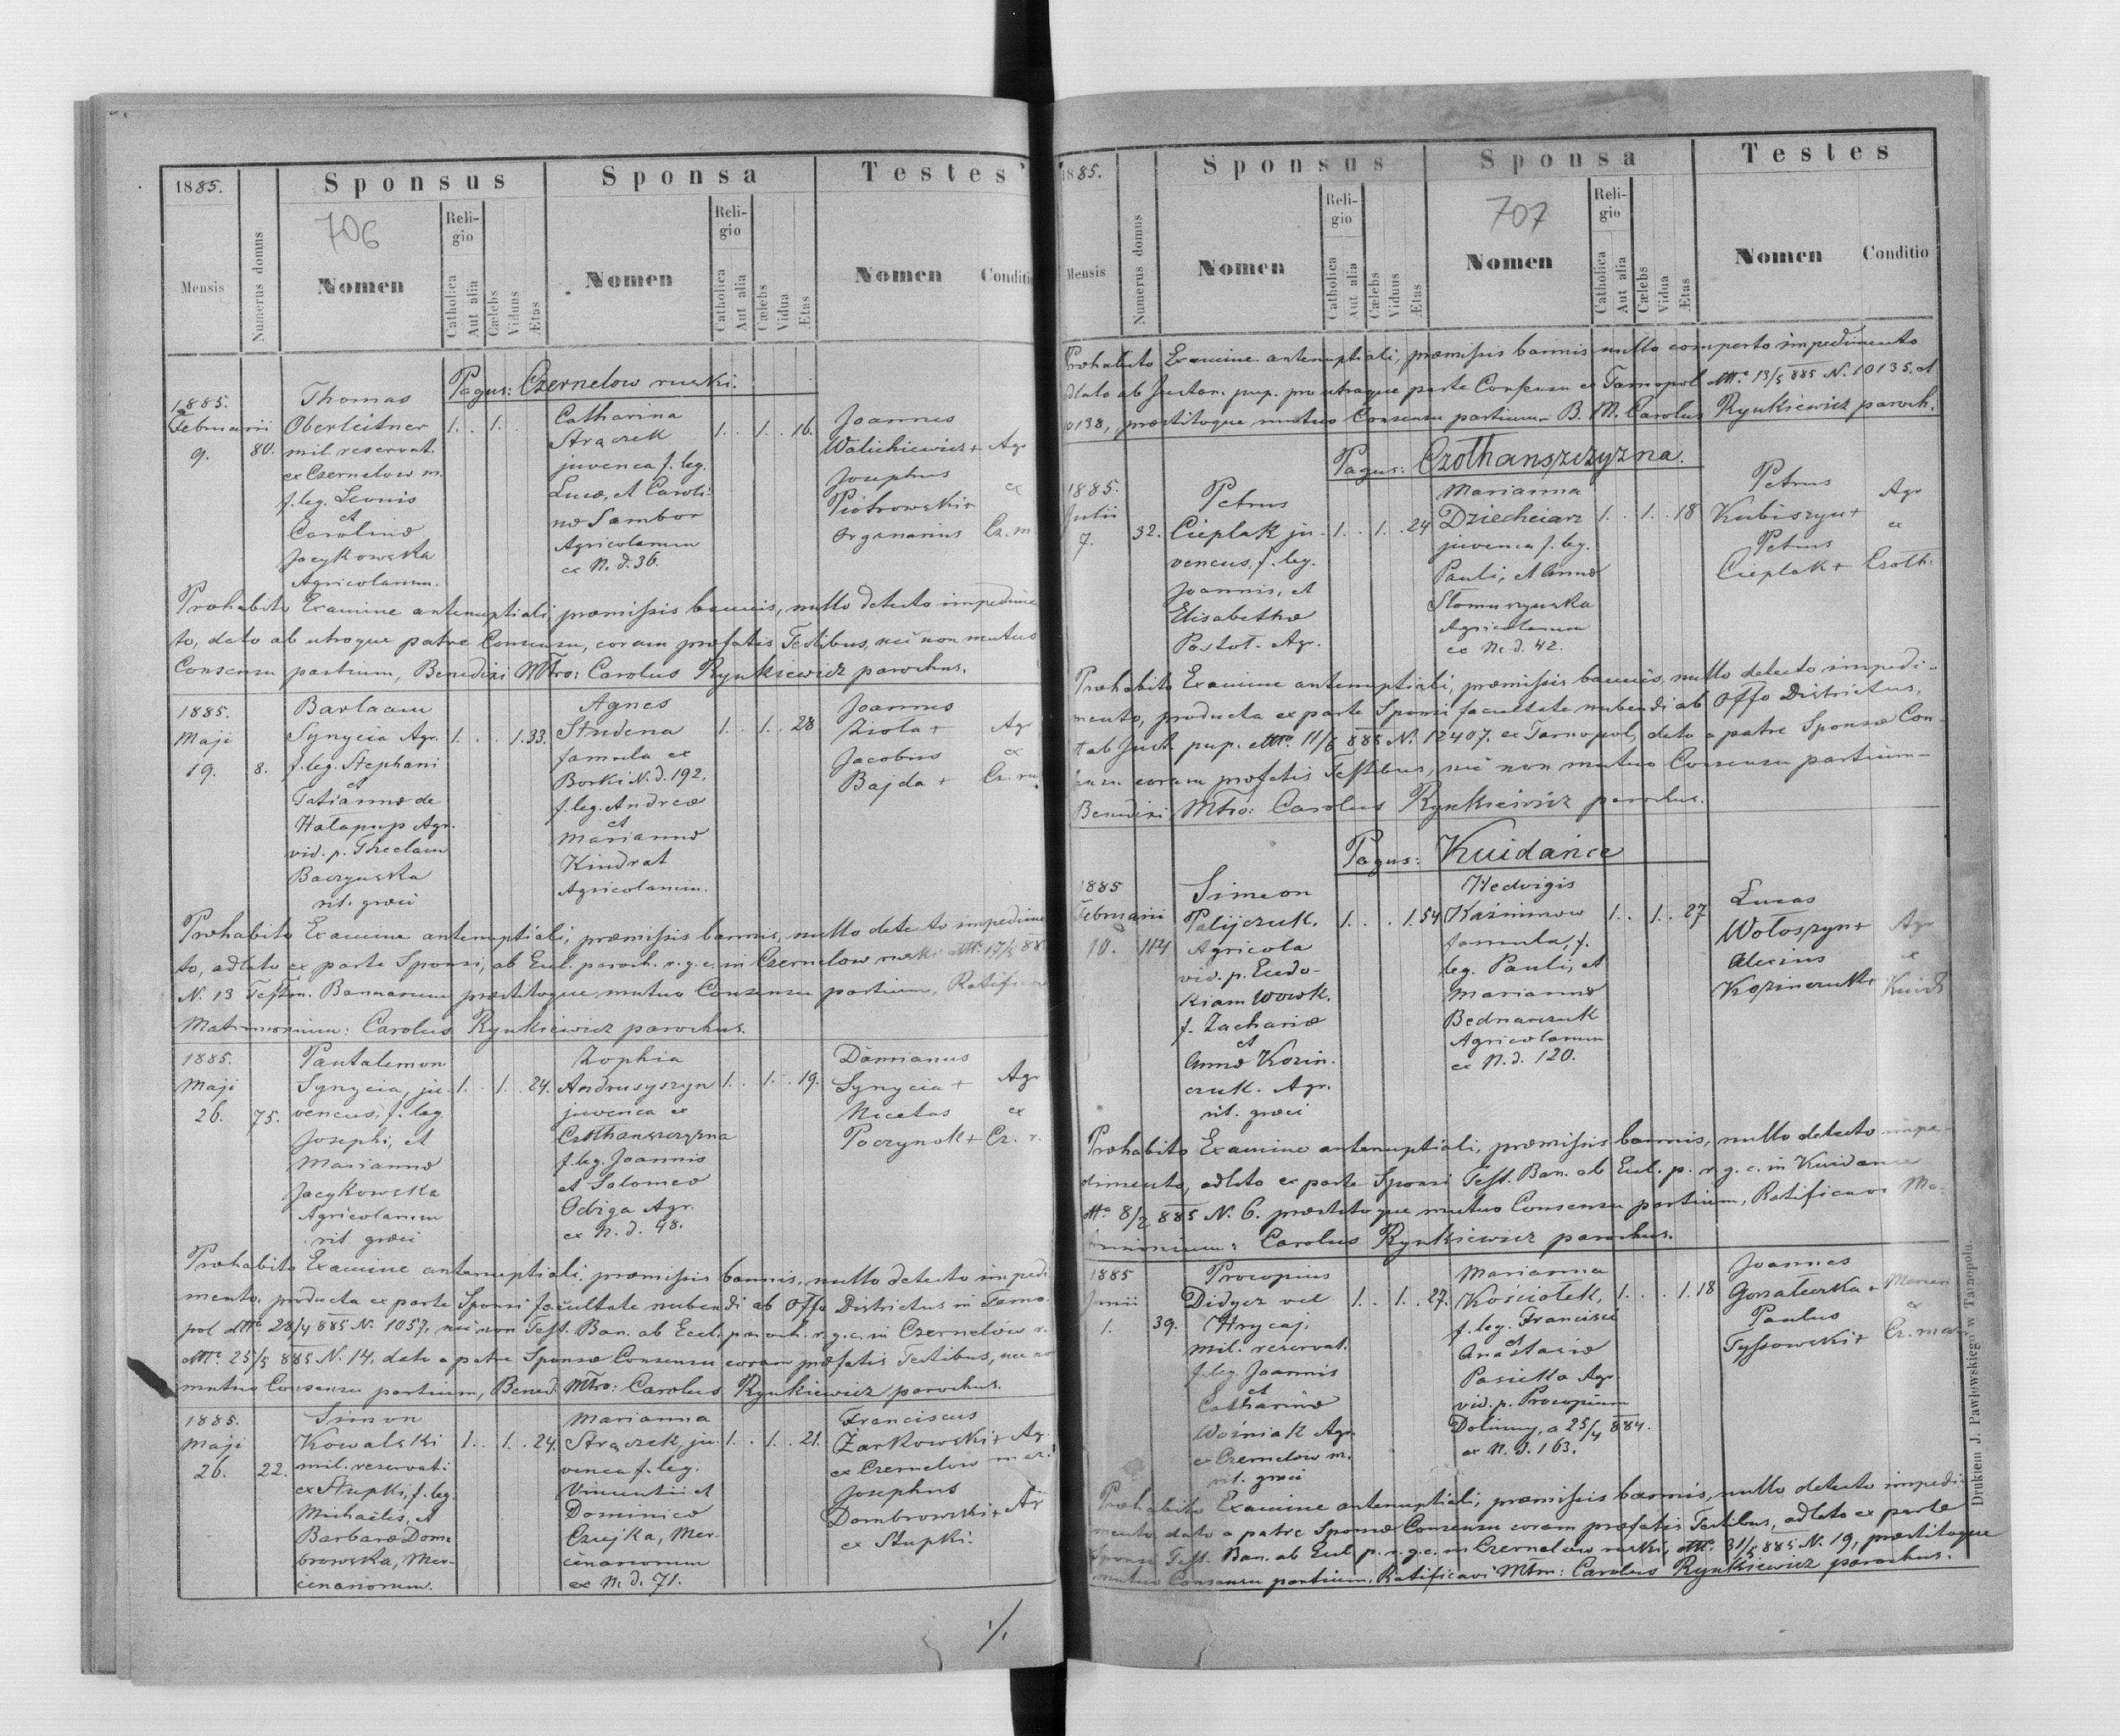 1885.
Sponsus
Sponsa
Testes
Mensis
Numerus domus
706
Nomen
Religio
Catholica
Aut alia
Cælebs
Viduus
Ætas
Nomen
Religio
Catholica
Aut alia
Cælebs
Vidua
Ætas
Nomen
Conditio
Pagus: Czernelow ruski.
1885.
Februarii
9.
80.
Thomas
Oberleitner
mil. reservat.
ex Czernelow m.
f. leg. Leonis
et
Carolinæ
Jacykowska
Agricolarum.
1. . 1.
Catharina
Strączek
juvenca f. leg.
Lucæ, et Caroli-
næ Sambor
Agricolarum
ex N. d. 36.
1. . 1. . 16.
Joannes
Walickiewicz + Agr
Josephus
ex
Piotrowski +
organarius Cz. m
Præhabito Examine antenuptiali præmissis bannis, nullo detecto impedime
to, dato ab utroque patre Consensu, coram præfatis Testibus, nec non mutuo
Consensu partium, Benedixi Mtro: Carolus Rynkiewicz parochus.
1885.
Maji
19.
8.
Barlaam
Synycia Agr.
f. leg. Stephani
et
Tatiannæ de
Hałapup Agr.
vid. p. Theclam
Baczynska
rit. græci
1. . . 1. 33.
Agnes
Studena
famula ex
Borki N. d. 192.
f. leg. Andreæ
et
Mariannæ
Kindrat
Agricolarum.
1. . 1. . 28
Joannes
Ziola + Agr
Jacobus ex
Bajda + Cz. ru
Præhabito Examine antenuptiali, præmissis bannis, nullo detecto impedime
to, adlato ex parte Sponsi, ab Eccl. paroch. r. g. c. in Czernelow ruski dtto 17/5 88
N. 13 Testim. Bannorum præstitoque mutuo Consensu partium, Ratificavi
Matrimonium: Carolus Rynkiewicz parochus.
1885.
Maji
26.
75.
Pantalemon
Synycia, ju-
vencus, f. leg.
Josephi, et
Mariannæ
Jacykowska
Agricolarum
rit. græci
1. . 1. . 24.
Zophia
Andrusyszyn
juvenca ex
Czołhanszczyzna
f. leg. Joannis
et Salomeæ
Odiga Agr.
ex N. d. 48.
1. . 1. . 19.
Damianus
Synycia + Agr
Nicetas ex
Poczynok + Cz. r.
Præhabito Examine antenuptiali, præmissis bannis, nullo detecto impedi
mento, producta ex parte Sponsi facultate nubendi ab Offo Districtus in Tarno-
pol dtto 28/4 885 N. 1057, nec non Test. Ban. ab Eccl. paroch. r. g. c. in Czernelów r.
dtto 25/5 885 N. 14, dato a patre Sponsæ Consensu coram præfatis Testibus, nec no
mutuo Consensu partium, Bened. Mtro: Carolus Rynkiewicz parochus.
1885.
Maji
26.
22.
Simon
Kowalski
mil. reservati
ex Stupki, f. leg.
Michaelis, et
Barbaræ Dom-
browska, Mer-
cenariorum.
1. . 1. . 24.
Marianna
Strączek, ju-
venca f. leg.
Vincentii et
Dominicæ
Czujka, Mer-
cenariorum
ex N. d. 71.
1. . 1. . 21.
Franciscus
Żarkowski + Ag.
ex Czernelow maz.
Josephus
Dombrowski + Ag
ex Stupki.
1/1
1885.
Sponsus
Sponsa
Testes
Mensis
Numerus domus
Nomen
Religio
Catholica
Aut alia
Cælebs
Viduus
Ætas
707
Nomen
Religio
Catholica
Aut alia
Cælebs
Vidua
Ætas
Nomen
Conditio
Præhabito Examine antenuptiali, præmissis bannis nullo comperto impedimento
adlato ab Juston. pup. pro utraque parte Consensu ex Tarnopol dtto 13/5 885 N. 10135. et
10138, præstitoque mutuo Consensu partium B. M. Carolus Rynkiewicz paroch.
Pagus: Czołhanszczyzna.
1885.
Julii
7.
32.
Petrus
Cieplak ju-
vencus, f. leg.
Joannis, et
Elisabethæ
Postoł. Agr.
1. . 1. . 24
Marianna
Dziechciarz
juvenca f. leg.
Pauli, et Annæ
Słomuszynska
Agricolarum
ex N. d. 42.
1. . 1. . 18
Petrus
Kubiszyn + Agr
ex
Petrus
Cieplak + Czołh.
Præhabito Examine antenuptiali, præmissis bannis, nullo detecto impedi-
mento, producta ex parte Sponsi facultate nubendi ab Offo Districtus,
et ab Just. pup. dtto 11/6 885 N. 12407. ex Tarnopol, dato a patre Sponsæ Con-
sensu coram præfatis Testibus, nec non mutuo Consensu partium-
Benedixi Mtro: Carolus Rynkiewicz parochus.
Pagus: Kuidańce
1885
Februarii
10.
114
Simeon
Palijczuk,
Agricola
vid. p. Eudo-
kiam Wowk.
f. Zachariæ
et
Annæ Kozin-
czuk. Agr.
rit. græci
1. . . 1. 54
Hedvigis
Kaźimirow
famula, f.
leg. Pauli, et
Mariannæ
Bednarczuk
Agricolarum
ex N. d. 120.
1. . 1. . 27
Lucas
Wołoszyn + Agr
Alexius ex
Kozinczuk + Kuid.
Præhabito Examine antenuptiali, præmissis bannis, nullo detecto impe-
dimento, adlato ex parte Sponsi Test. Ban. ab Eccl. p. r. g. c. in Kuidance
dtto 8/2 885 N. 6. præstitoque mutuo Consensu partium, Ratificavi Ma-
trimonium: Carolus Rynkiewicz parochus.
1885
Junii
1.
39.
Procopius
Didycz vel
Hrycaj,
mil. reservat.
f. leg. Joannis
et
Catharinæ
Woźniak Agr.
ex Czernelow m.
rit. græci
1. . 1. . 27.
Marianna
Kosciołek,
f. leg. Francisci
et
Anastasiæ
Pasieka Agr.
vid. p. Procopium
Dolinny, a 25/4 884.
ex N. d. 163.
1. . . 1. 18
Joannes
Goraleczka +
Paulus ex
Tyssowski + Cz. maz
Præhabito Examine antenuptiali, præmissis bannis, nullo detecto impedi-
mento, dato a patre Sponsæ Consensu coram præfatis Testibus, adlato ex parte
Sponsi Test. Ban. ab Eccl. p. r. g. c. in Czernelow ruski, dtto 31/5 885 N. 19, præstitoque
mutuo Consensu partium. Ratificavi Mtm: Carolus Rynkiewicz parochus.
Drukiem J. Pawłowskiego w Tarnopolu.